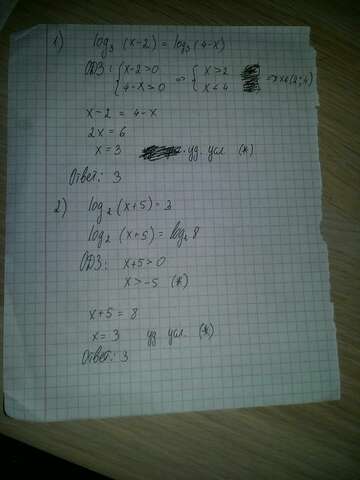 1) log₃ (x-2) = log₃ (4-x)
ОДЗ: { x-2>0 => { x>2 => x∈(2;4)
4-x>0 x<4
x-2 = 4-x
2x = 6
x = 3 уд. усл. (*)
Ответ: 3
2) log₂ (x+5) = 3
log₂ (x+5) = log₂ 8
ОДЗ: x+5>0
x>-5 (*)
x+5 = 8
x = 3 уд. усл. (*)
Ответ: 3